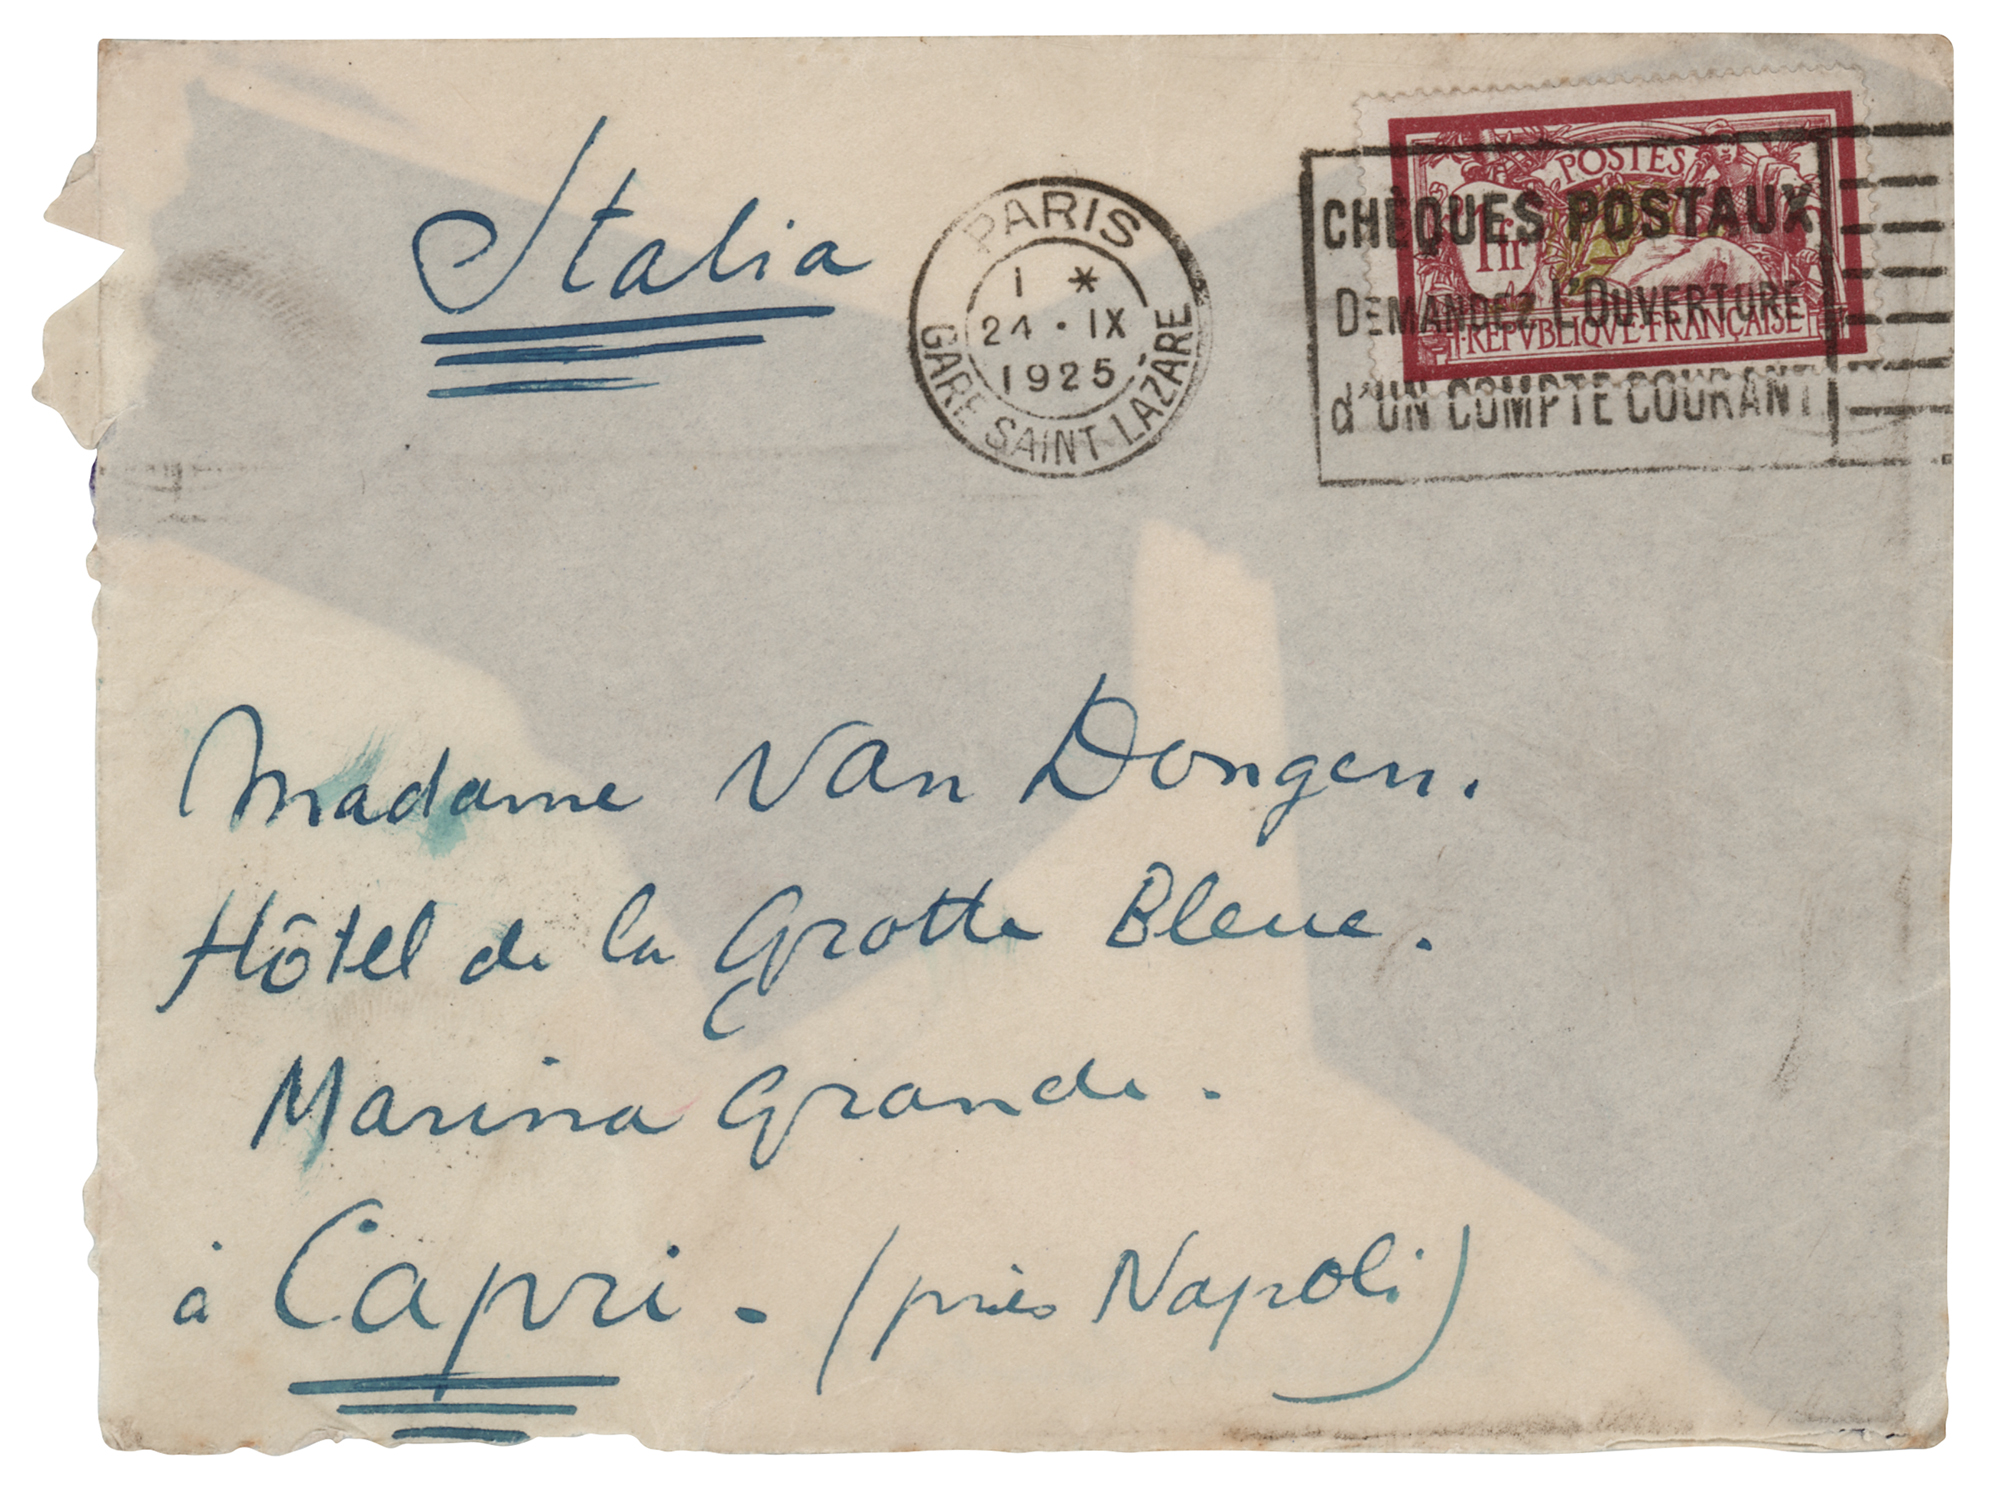 Italia
PARIS
1 *
24 · IX
1925
GARE SAINT-LAZARE
POSTES
1 fr
REPVBLIQVE·FRANÇAISE
CHÈQUES POSTAUX
DEMANDEZ L'OUVERTURE
d'UN COMPTE COURANT
Madame Van Dongen.
Hôtel de la Grotte Bleue.
Marina Grande.
à Capri - (près Napoli)